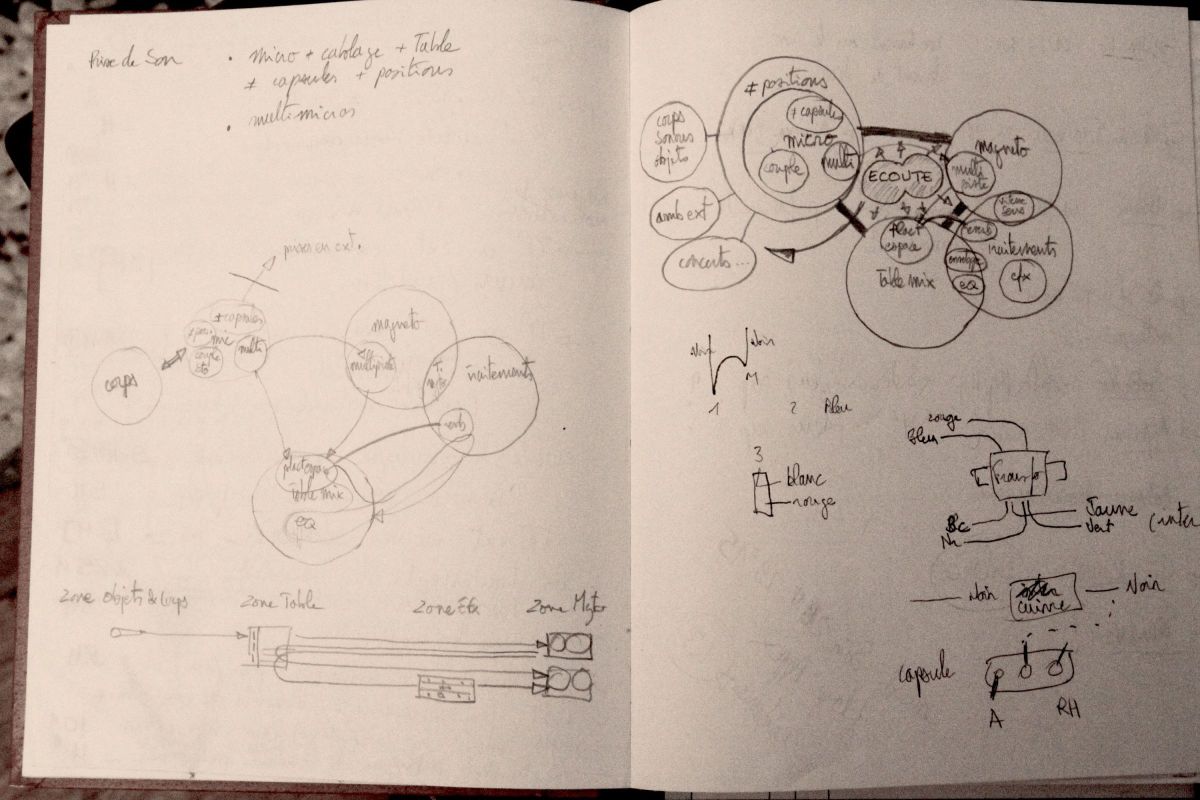 Prise de Son
• micro + cablage + Table
≠ capsules + positions
• multimicros
prises en ext.
≠ capsules
mic
couple
multi
corps
magneto
multipistes
traitements
verb
Table mix
EQ
Zone Objets & Corps
Zone Table
Zone Efx
Zone Mgto
≠ positions
≠ capsules
micro
couple
multi
corps
sonores
objets
amb ext
concerts...
ECOUTE
magneto
multi
piste
vitesse
sens
traitements
verb
enveloppe
EQ
efx
espace
Table mix
Noir
Noir
1
M
2 Bleu
3
blanc
rouge
rouge
Bleu
Transfo
Bc
Nr
Jaune
Vert
(inter
Noir
cuivre
Noir
capsule
A
RH